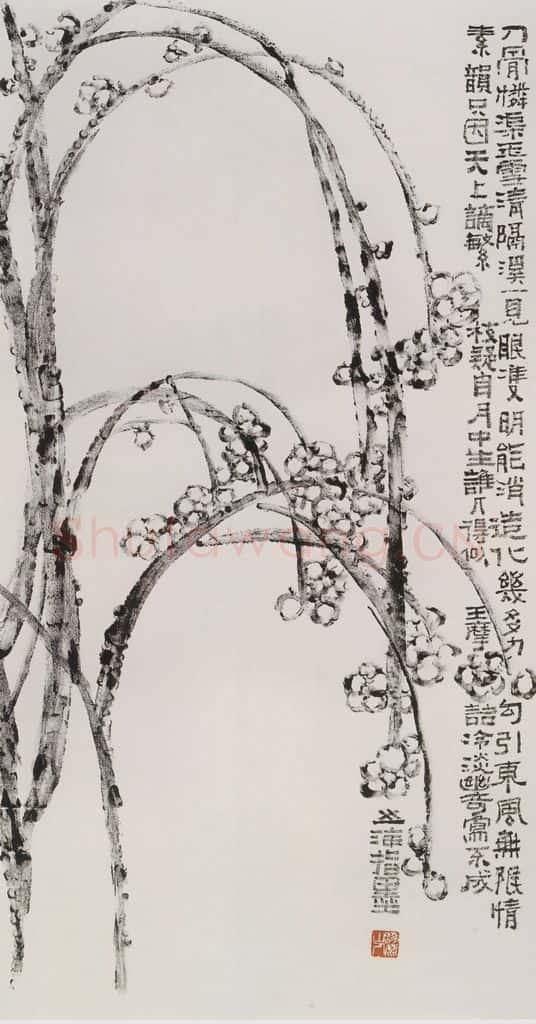 刀骨憐渠雪清隔溪一見眼雙明能消造化幾多力勾引東風無限情
素韻只因天上謫繁枝疑自月中生誰人得似王摩詰冷淡幽奇寫不成
指墨
Shufawang.CN